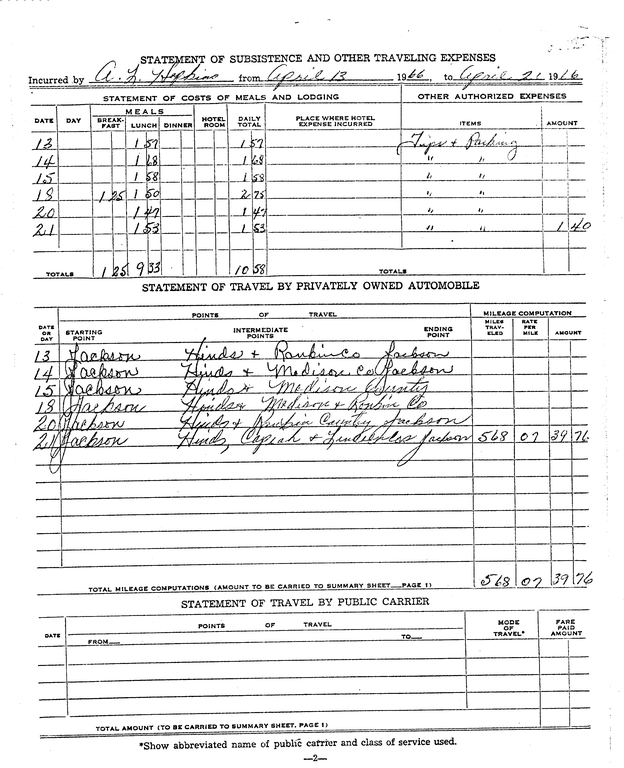 STATEMENT OF SUBSISTENCE AND OTHER TRAVELING EXPENSES
Incurred by A. L. Hopkins from April 13 1966, to April 21 1966
STATEMENT OF COSTS OF MEALS AND LODGING OTHER AUTHORIZED EXPENSES
DATE DAY MEALS BREAK-FAST LUNCH DINNER HOTEL ROOM DAILY TOTAL PLACE WHERE HOTEL EXPENSE INCURRED ITEMS AMOUNT
13 1 57 1 57 Tips & Parking
14 1 68 1 68 " "
15 1 58 1 58 " "
18 1 25 1 50 2 75 " "
20 1 47 1 47 " "
21 1 53 1 53 " " 1 40
TOTALS 1 25 9 33 10 58 TOTALS
STATEMENT OF TRAVEL BY PRIVATELY OWNED AUTOMOBILE
POINTS OF TRAVEL MILEAGE COMPUTATION
DATE OR DAY STARTING POINT INTERMEDIATE POINTS ENDING POINT MILES TRAV-ELED RATE PER MILE AMOUNT
13 Jackson Hinds & Rankin Co Jackson
14 Jackson Hinds & Madison Co Jackson
15 Jackson Hinds & Madison County
18 Jackson Hinds & Madison & Rankin Co
20 Jackson Hinds & Rankin County Jackson
21 Jackson Hinds, Copiah & Jackson 568 07 39 76
TOTAL MILEAGE COMPUTATIONS (AMOUNT TO BE CARRIED TO SUMMARY SHEET—PAGE 1) 568 07 39 76
STATEMENT OF TRAVEL BY PUBLIC CARRIER
DATE POINTS OF TRAVEL MODE OF TRAVEL* FARE PAID AMOUNT
FROM— TO—
TOTAL AMOUNT (TO BE CARRIED TO SUMMARY SHEET, PAGE 1)
*Show abbreviated name of public carrier and class of service used.
—2—